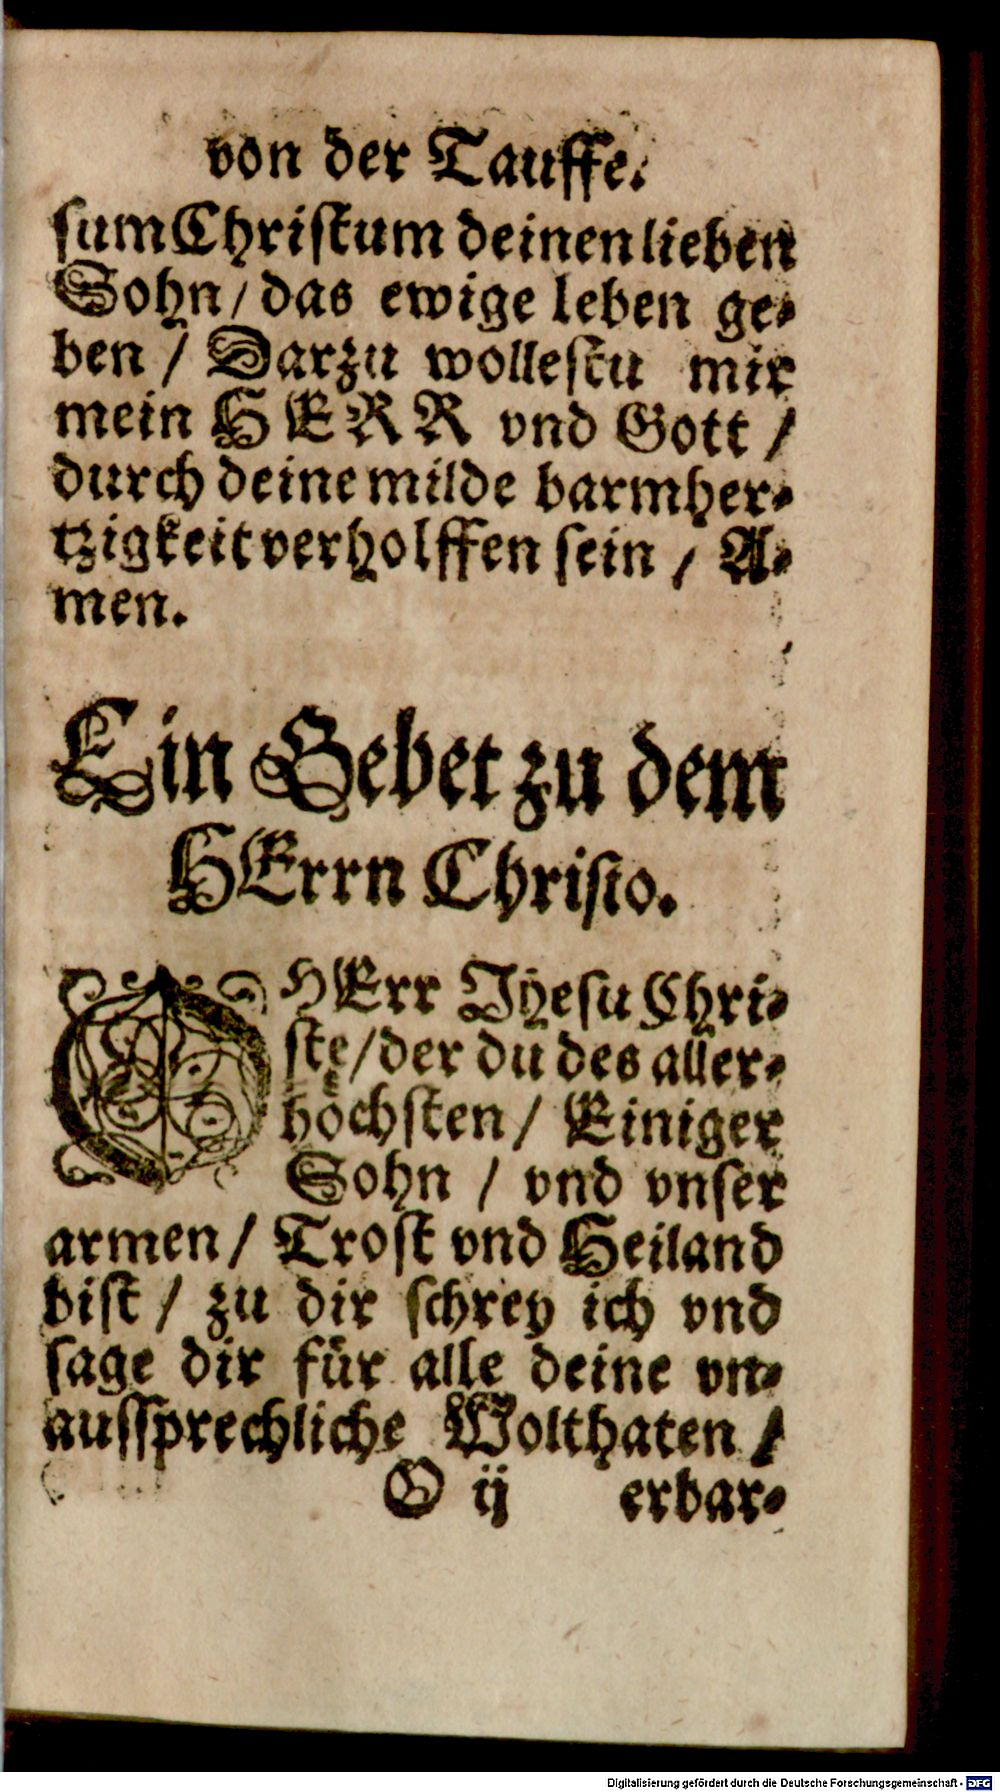 von der Tauffe.
sum Christum deinen lieben
Sohn / das ewige leben ge-
ben / Darzu wollestu mir
mein HERR vnd Gott /
durch deine milde barmher-
tzigkeit verholffen sein / A-
men.
Ein Gebet zu dem
HErrn Christo.
O HErr Jhesu Chri-
ste / der du des aller-
höchsten / Einiger
Sohn / vnd vnser
armen / Trost vnd Heiland
bist / zu dir schrey ich vnd
sage dir für alle deine vn-
aussprechliche Wolthaten /
O ij erbar-
Digitalisierung gefördert durch die Deutsche Forschungsgemeinschaft - DFG